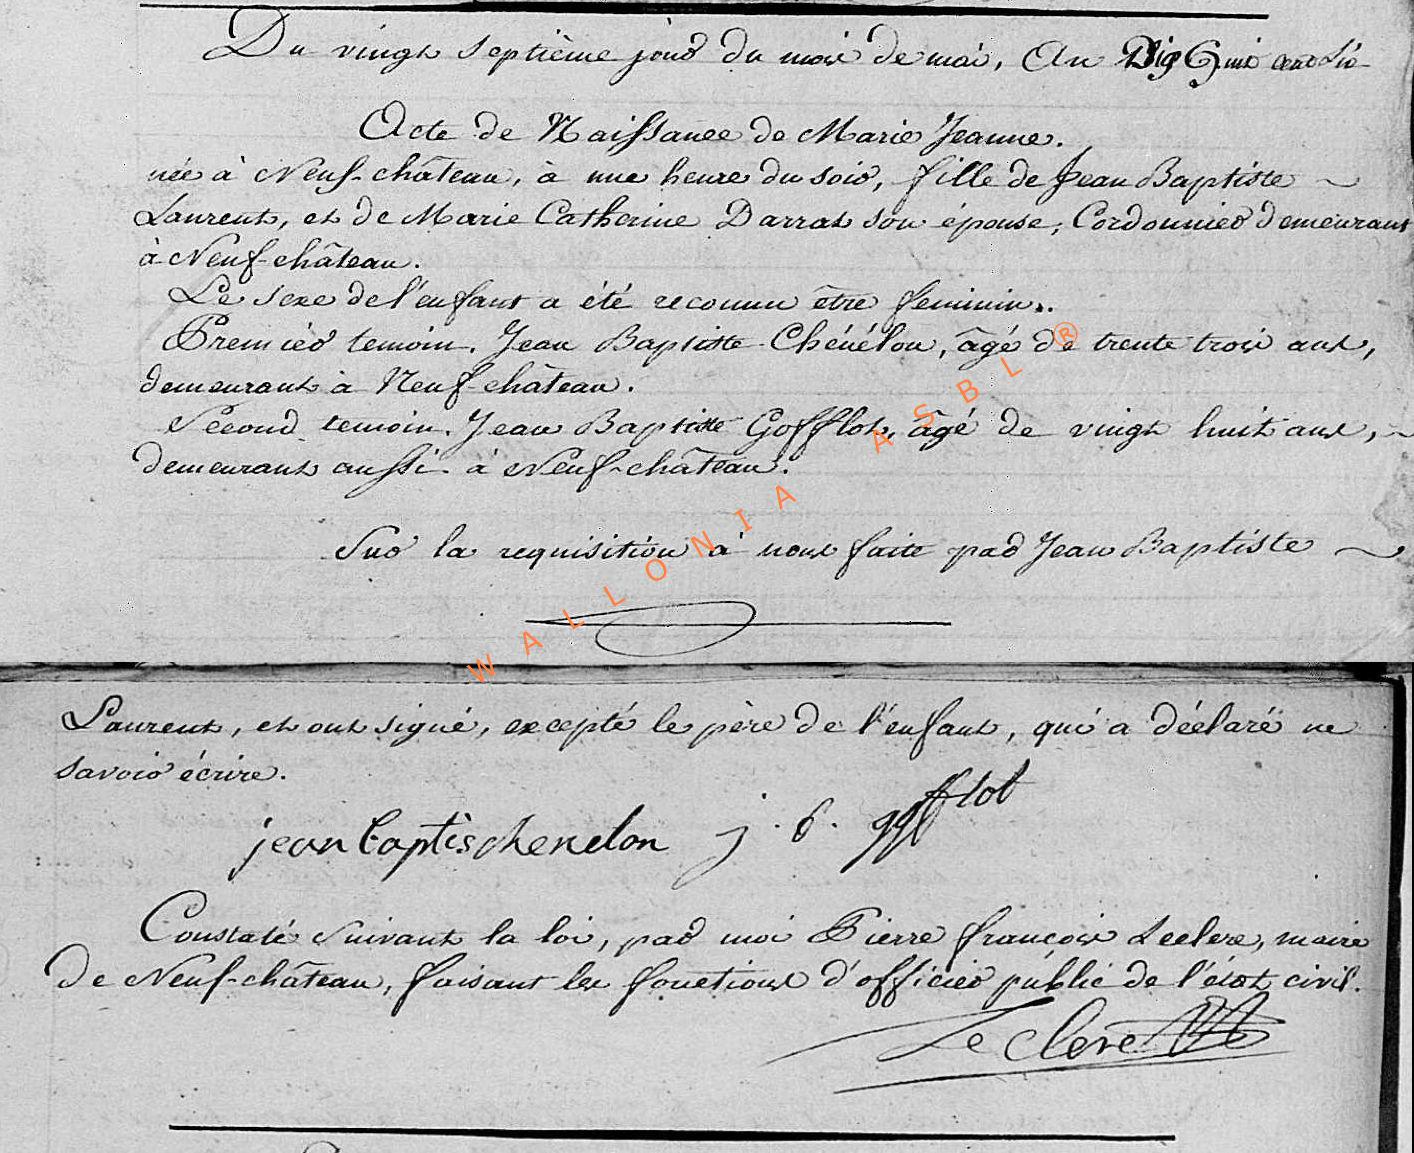 Du vingt septième jour du mois de mai, An Dix huit cent Six
Acte de Naissance de Marie Jeanne.
née à Neuf-château, à une heure du soir, fille de Jean Baptiste
Laurent, et de Marie Catherine Darras son épouse, Cordonnier demeurant
à Neuf-château.
Le sexe de l'enfant a été reconnu être feminin.
Premier temoin, Jean Baptiste Chénélon, âgé de trente trois ans,
demeurant à Neuf château.
Second temoin, Jean Baptiste Gofflot, âgé de vingt huit ans,
demeurant aussi à Neuf-château.
Sur la requisition à nous faite par Jean Baptiste
WALLONIA ASBL ®
Laurent, et ont signé, excepté le père de l'enfant, qui a déclaré ne
savoir écrire.
jean baptis chenelon j. b. gofflot
Constaté suivant la loi, par moi Pierre françois Leclere, maire
de Neuf-château, faisant les fonctions d'officier public de l'état civil.
Leclere